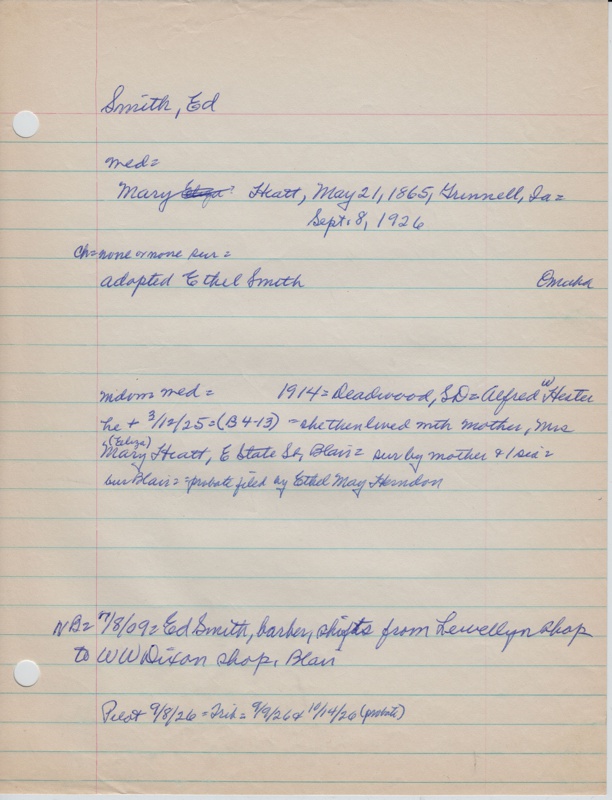 Smith, Ed
med=
Mary Eliza? Heatt, May 21, 1865, Grinnell, Ia=
Sept. 8, 1926
Ch=none or none sur=
adopted Ethel Smith Omaha
mdom= med= 1914= Deadwood, SD= Alfred W Hester
he + 3/12/25=(B4-13) = she then lived with mother, Mrs
(Eliza)
Mary Heatt, E State St, Blair= sur by mother & 1 sis=
bur Blair= =probate filed by Ethel May Herndon
NB= 7/8/09= Ed Smith, barber, shifts from Lewellyn shop
to WW Dixon shop, Blair
Pilot 9/8/26= Trib= 9/9/26 & 10/14/26 (probate)